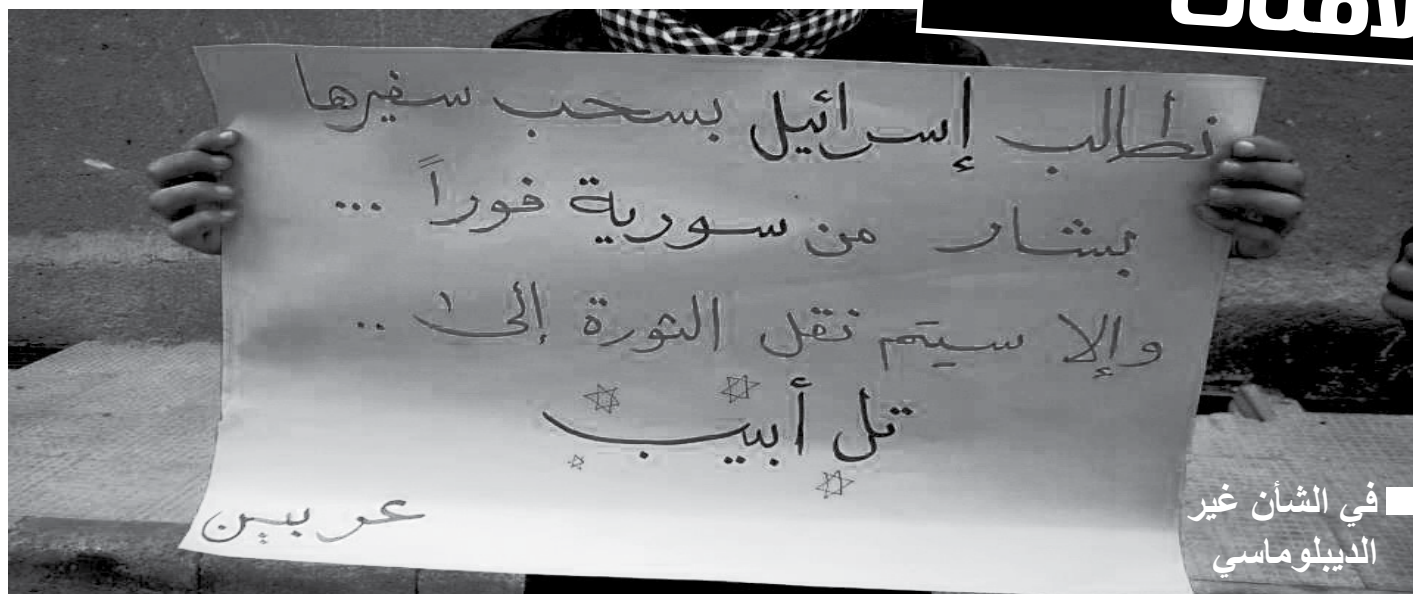 نطالب إسرائيل بسحب سفيرها
بشار من سورية فوراً ...
وإلا سيتم نقل الثورة إلى ..
تل أبيب
عربين
في الشأن غير
الديبلوماسي